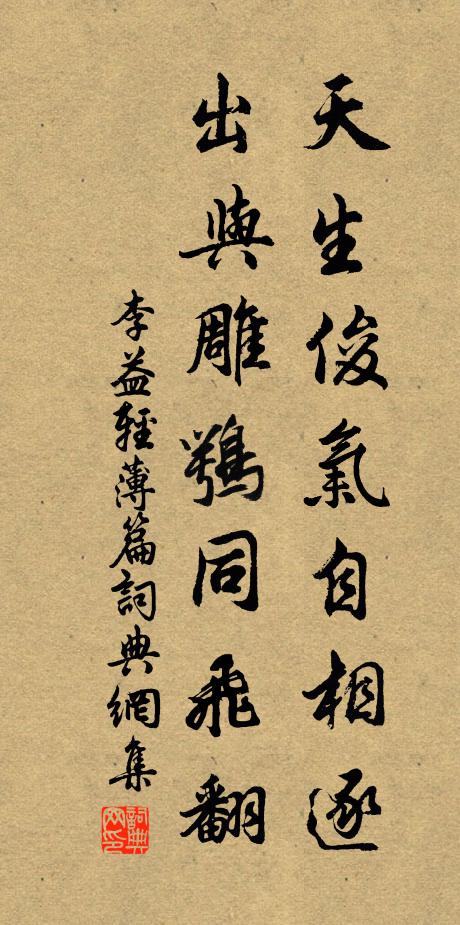 天生俊氣自相逐
出與雕鶚同飛翻
李益輕薄篇詞典網集
詞典网印